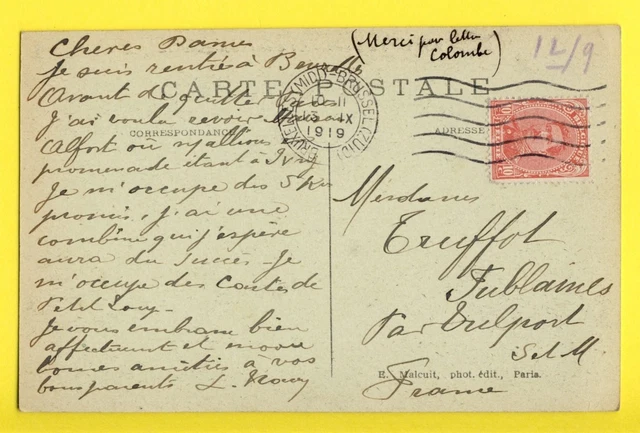 (Merci pour lettre
Colombe)
12/9
CARTE POSTALE
CORRESPONDANCE
ADRESSE
BRUXELLES (MIDI) BRUSSEL (ZUID)
IX
1919
10
10
Cheres Dames
Je suis rentrée à
Avant de quitter
j'ai voulu revoir
Alfort où ns allions
promenade étant à Ivry
Je m'occupe des 5 k
promis, j'ai une
combine qui j'espère
aura du succès. Je
m'occupe des Cartes de
Petit Louy.
Je vous embrasse bien
affectueust et
bonnes amitiés à vos
bons parents L.
Mesdames
Truffot
Fublaines
Par Trilport
S et M.
E. Malcuit, phot. édit., Paris.
France